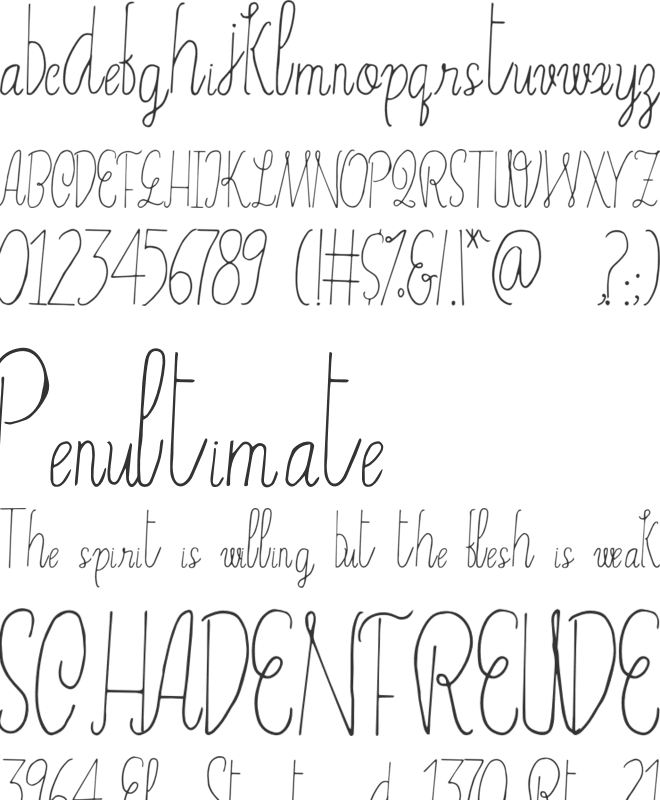 abcdefghijklmnopqrstuvwxyz
ABCDEFGHIJKLMNOPQRSTUVWXYZ
0123456789 (!#$%&/.|*~@ ,?:;)
Penultimate
The spirit is willing but the flesh is weak
SCHADENFREUDE
3964 El St t d 1370 Rt 21